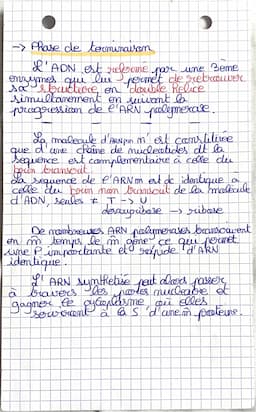 → Phase de terminaison
L'ADN est refermé par une 3ème
enzymes qui lui permet de retrouver
sa structure en double hélice
simultanément en suivant la
progression de l'ARN polymérase.
La molécule d'ARNpm m' est constituée
que d'une chaîne de nucléotides dt la
séquence est complémentaire à celle du
brin transcrit.
La séquence de l'ARNm est dc identique à
celle du brin non transcrit de la molécule
d'ADN, seules ≠ T → U
désoxyribose → ribose
De nombreuses ARN polymérases transcrivent
en m̂ temps le m̂ gène ce qui permet
une P importante et rapide d'ARN
identique.
L'ARN synthétisé peut alors passer
à travers les pores nucléaire et
gagner le cytoplasme où elles
serviront à la S d'une m̂ protéine.